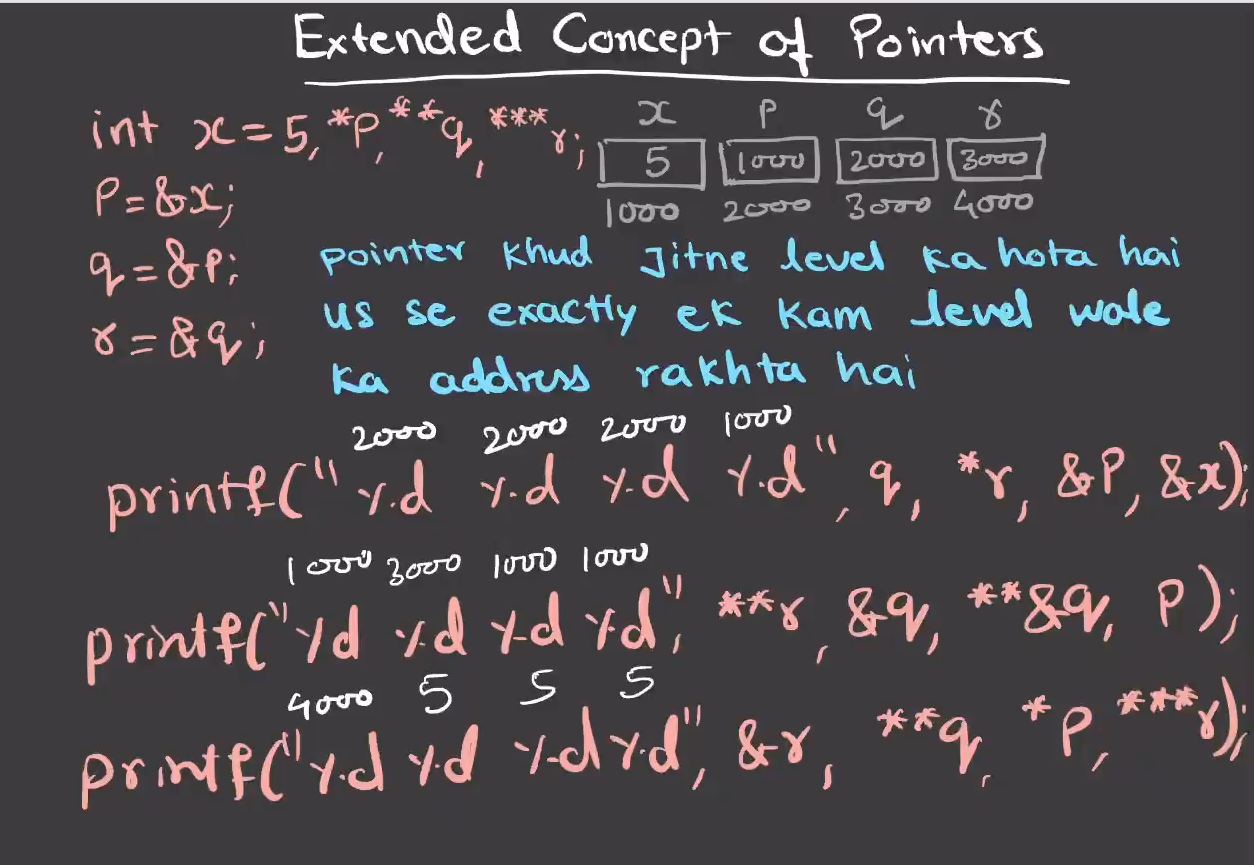 Extended Concept of Pointers
int x=5, *p, **q, ***r;
x p q r
5 1000 2000 3000
1000 2000 3000 4000
p=&x;
q=&p;
r=&q;
pointer khud Jitne level ka hota hai
us se exactly ek kam level wale
ka address rakhta hai
2000 2000 2000 1000
printf("%d %d %d %d", q, *r, &p, &x);
1000 3000 1000 1000
printf("%d %d %d %d", **r, &q, **&q, p);
4000 5 5 5
printf("%d %d %d %d", &r, **q, *p, ***r);